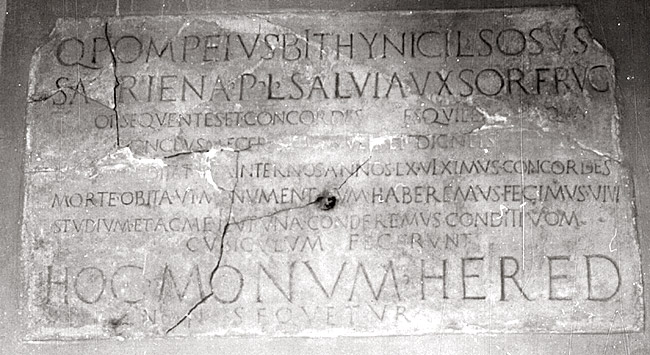 Q POMPEIVS BITHYNICI L SOSVS
SATRIENA·P·L·SALVIA VXSOR FRVG
OPSEQVENTES ET CONCORDES
DIGNEIS
INTER NOS ANNOS LX VIXIMVS·CONCORDES
MORTE·OBITA·VT MONVMENTVM HABEREMVS·FECIMVS VIVI
STVDIVM ET ACME VT VNA·CONDEREMVS CONDITI VOM
CVBICVLVM FECERVNT
HOC·MONVM·HERED
SEQVETVR